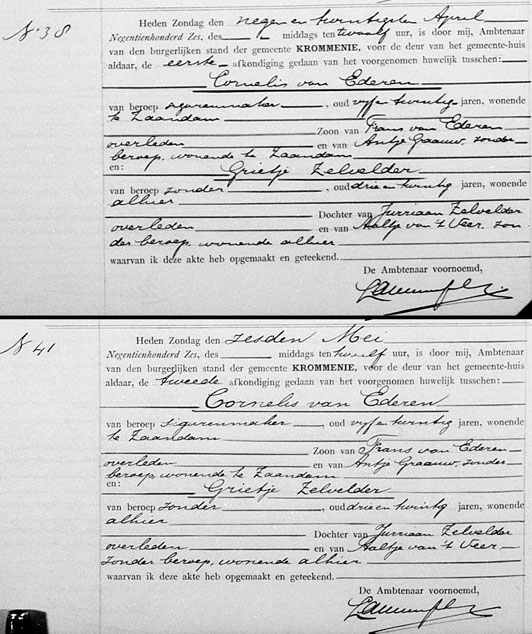 No 38
Heden Zondag den negen en twintigsten April
Negentienhonderd Zes, des middags ten twaalf uur, is door mij, Ambtenaar
van den burgerlijken stand der gemeente KROMMENIE, voor de deur van het gemeente-huis
aldaar, de eerste afkondiging gedaan van het voorgenomen huwelijk tusschen:
Cornelis van Ederen
van beroep sigarenmaker, oud vijf en twintig jaren, wonende
te Zaandam
Zoon van Frans van Ederen
overleden en van Antje Graauw, zonder
beroep, wonende te Zaandam
en: Grietje Zelvelder
van beroep zonder, oud drie en twintig jaren, wonende
alhier
Dochter van Jurriaan Zelvelder
overleden en van Aaltje van 't Veer, zon
der beroep, wonende alhier
waarvan ik deze akte heb opgemaakt en geteekend.
De Ambtenaar voornoemd,
No 41
Heden Zondag den zesden Mei
Negentienhonderd Zes, des middags ten twaalf uur, is door mij, Ambtenaar
van den burgerlijken stand der gemeente KROMMENIE, voor de deur van het gemeente-huis
aldaar, de tweede afkondiging gedaan van het voorgenomen huwelijk tusschen:
Cornelis van Ederen
van beroep sigarenmaker, oud vijf en twintig jaren, wonende
te Zaandam
Zoon van Frans van Ederen
overleden en van Antje Graauw, zonder
beroep, wonende te Zaandam
en: Grietje Zelvelder
van beroep zonder, oud drie en twintig jaren, wonende
alhier
Dochter van Jurriaan Zelvelder
overleden en van Aaltje van 't Veer
zonder beroep, wonende alhier
waarvan ik deze akte heb opgemaakt en geteekend.
De Ambtenaar voornoemd,